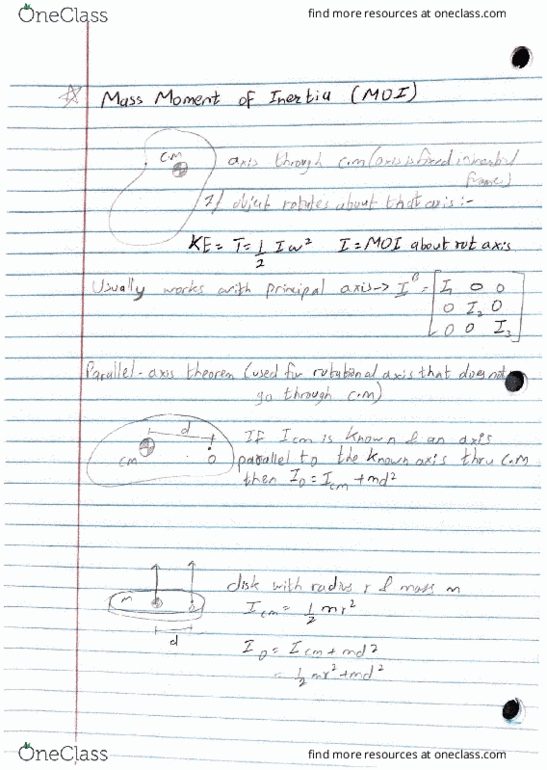 OneClass
find more resources at oneclass.com
Mass Moment of Inertia (MOI)
C.M
axis through c.m (axis is fixed in inertial
frame)
If object rotates about that axis :-
KE = T = 1/2 I ω² I = MOI about rot axis
Usually works with principal axis -> I^B = [I₁ 0 0
0 I₂ 0
0 0 I₃]
Parallel-axis theorem (used for rotational axis that does not
go through c.m)
d
CM
O
If Icm is known & an axis
parallel to the known axis thru C.M
then I₀ = Icm + md²
m
d
disk with radius r & mass m
Icm = 1/2 mr²
I₀ = Icm + md²
= 1/2 mr² + md²
OneClass
find more resources at oneclass.com